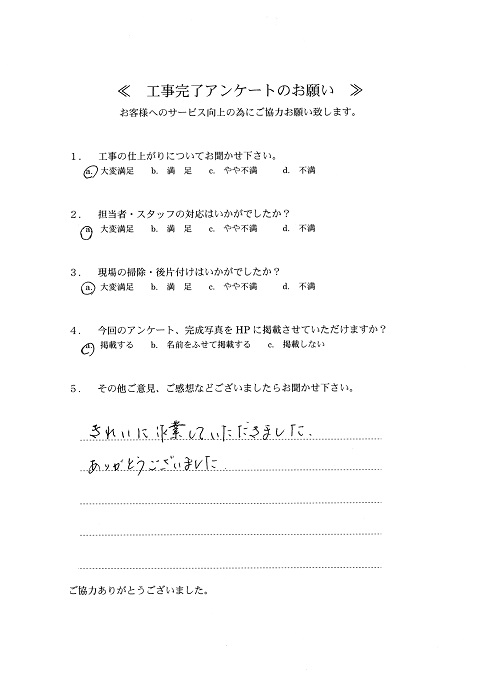 ≪ 工事完了アンケートのお願い ≫
お客様へのサービス向上の為にご協力お願い致します。
1. 工事の仕上がりについてお聞かせ下さい。
a. 大変満足 b. 満 足 c. やや不満 d. 不満
2. 担当者・スタッフの対応はいかがでしたか？
a. 大変満足 b. 満 足 c. やや不満 d. 不満
3. 現場の掃除・後片付けはいかがでしたか？
a. 大変満足 b. 満 足 c. やや不満 d. 不満
4. 今回のアンケート、完成写真を HP に掲載させていただけますか？
a. 掲載する b. 名前をふせて掲載する c. 掲載しない
5. その他ご意見、ご感想などございましたらお聞かせ下さい。
きれいに作業していただきました.
ありがとうございました.
ご協力ありがとうございました。